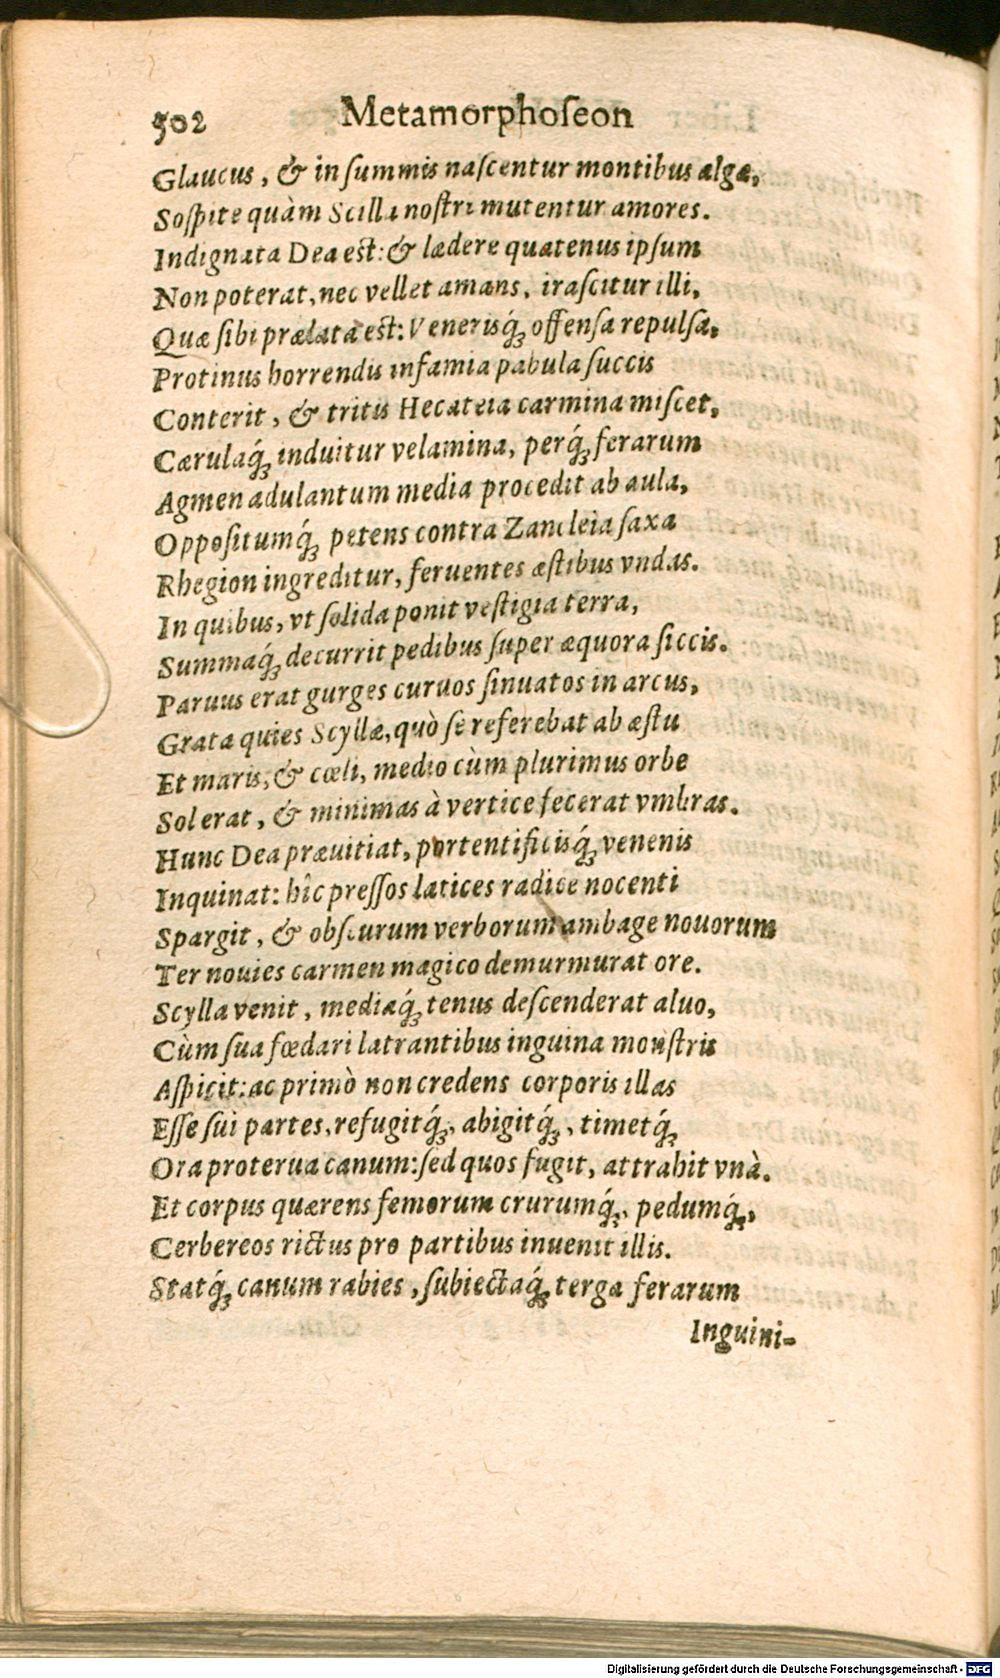 502 Metamorphoſeon
Glaucus, & in ſummis naſcentur montibus algæ,
Soſpite quàm Scilla noſtri mutentur amores.
Indignata Dea est: & lædere quatenus ipſum
Non poterat, nec vellet amans, iraſcitur illi,
Quæ ſibi prælata est: Venerisq́ꝫ offenſa repulſa,
Protinus horrendis infamia pabula ſuccis
Conterit, & tritis Hecateia carmina miſcet,
Cærulaq́ꝫ induitur velamina, perq́ꝫ ferarum
Agmen adulantum media procedit ab aula,
Oppoſitumq́ꝫ petens contra Zancleia ſaxa
Rhegion ingreditur, feruentes æſtibus vndas.
In quibus, vt ſolida ponit veſtigia terra,
Summaq́ꝫ decurrit pedibus ſuper æquora ſiccis.
Paruus erat gurges curuos ſinuatos in arcus,
Grata quies Scyllæ, quò ſe referebat ab æſtu
Et maris, & cœli, medio cùm plurimus orbe
Sol erat, & minimas à vertice fecerat vmbras.
Hunc Dea præuitiat, portentificisq́ꝫ venenis
Inquinat: hîc preſſos latices radice nocenti
Spargit, & obſcurum verborum ambage nouorum
Ter nouies carmen magico demurmurat ore.
Scylla venit, mediaq́ꝫ tenus deſcenderat aluo,
Cùm ſua fœdari latrantibus inguina monſtris
Aſpicit: ac primò non credens corporis illas
Eſſe ſui partes, refugitq́ꝫ, abigitq́ꝫ, timetq́ꝫ
Ora proterua canum: ſed quos fugit, attrahit vnà.
Et corpus quærens femorum crurumq́ꝫ, pedumq́ꝫ,
Cerbereos rictus pro partibus inuenit illis.
Statq́ꝫ canum rabies, ſubiectaq́ꝫ terga ferarum
Inguini-
Digitalisierung gefördert durch die Deutsche Forschungsgemeinschaft - DFG